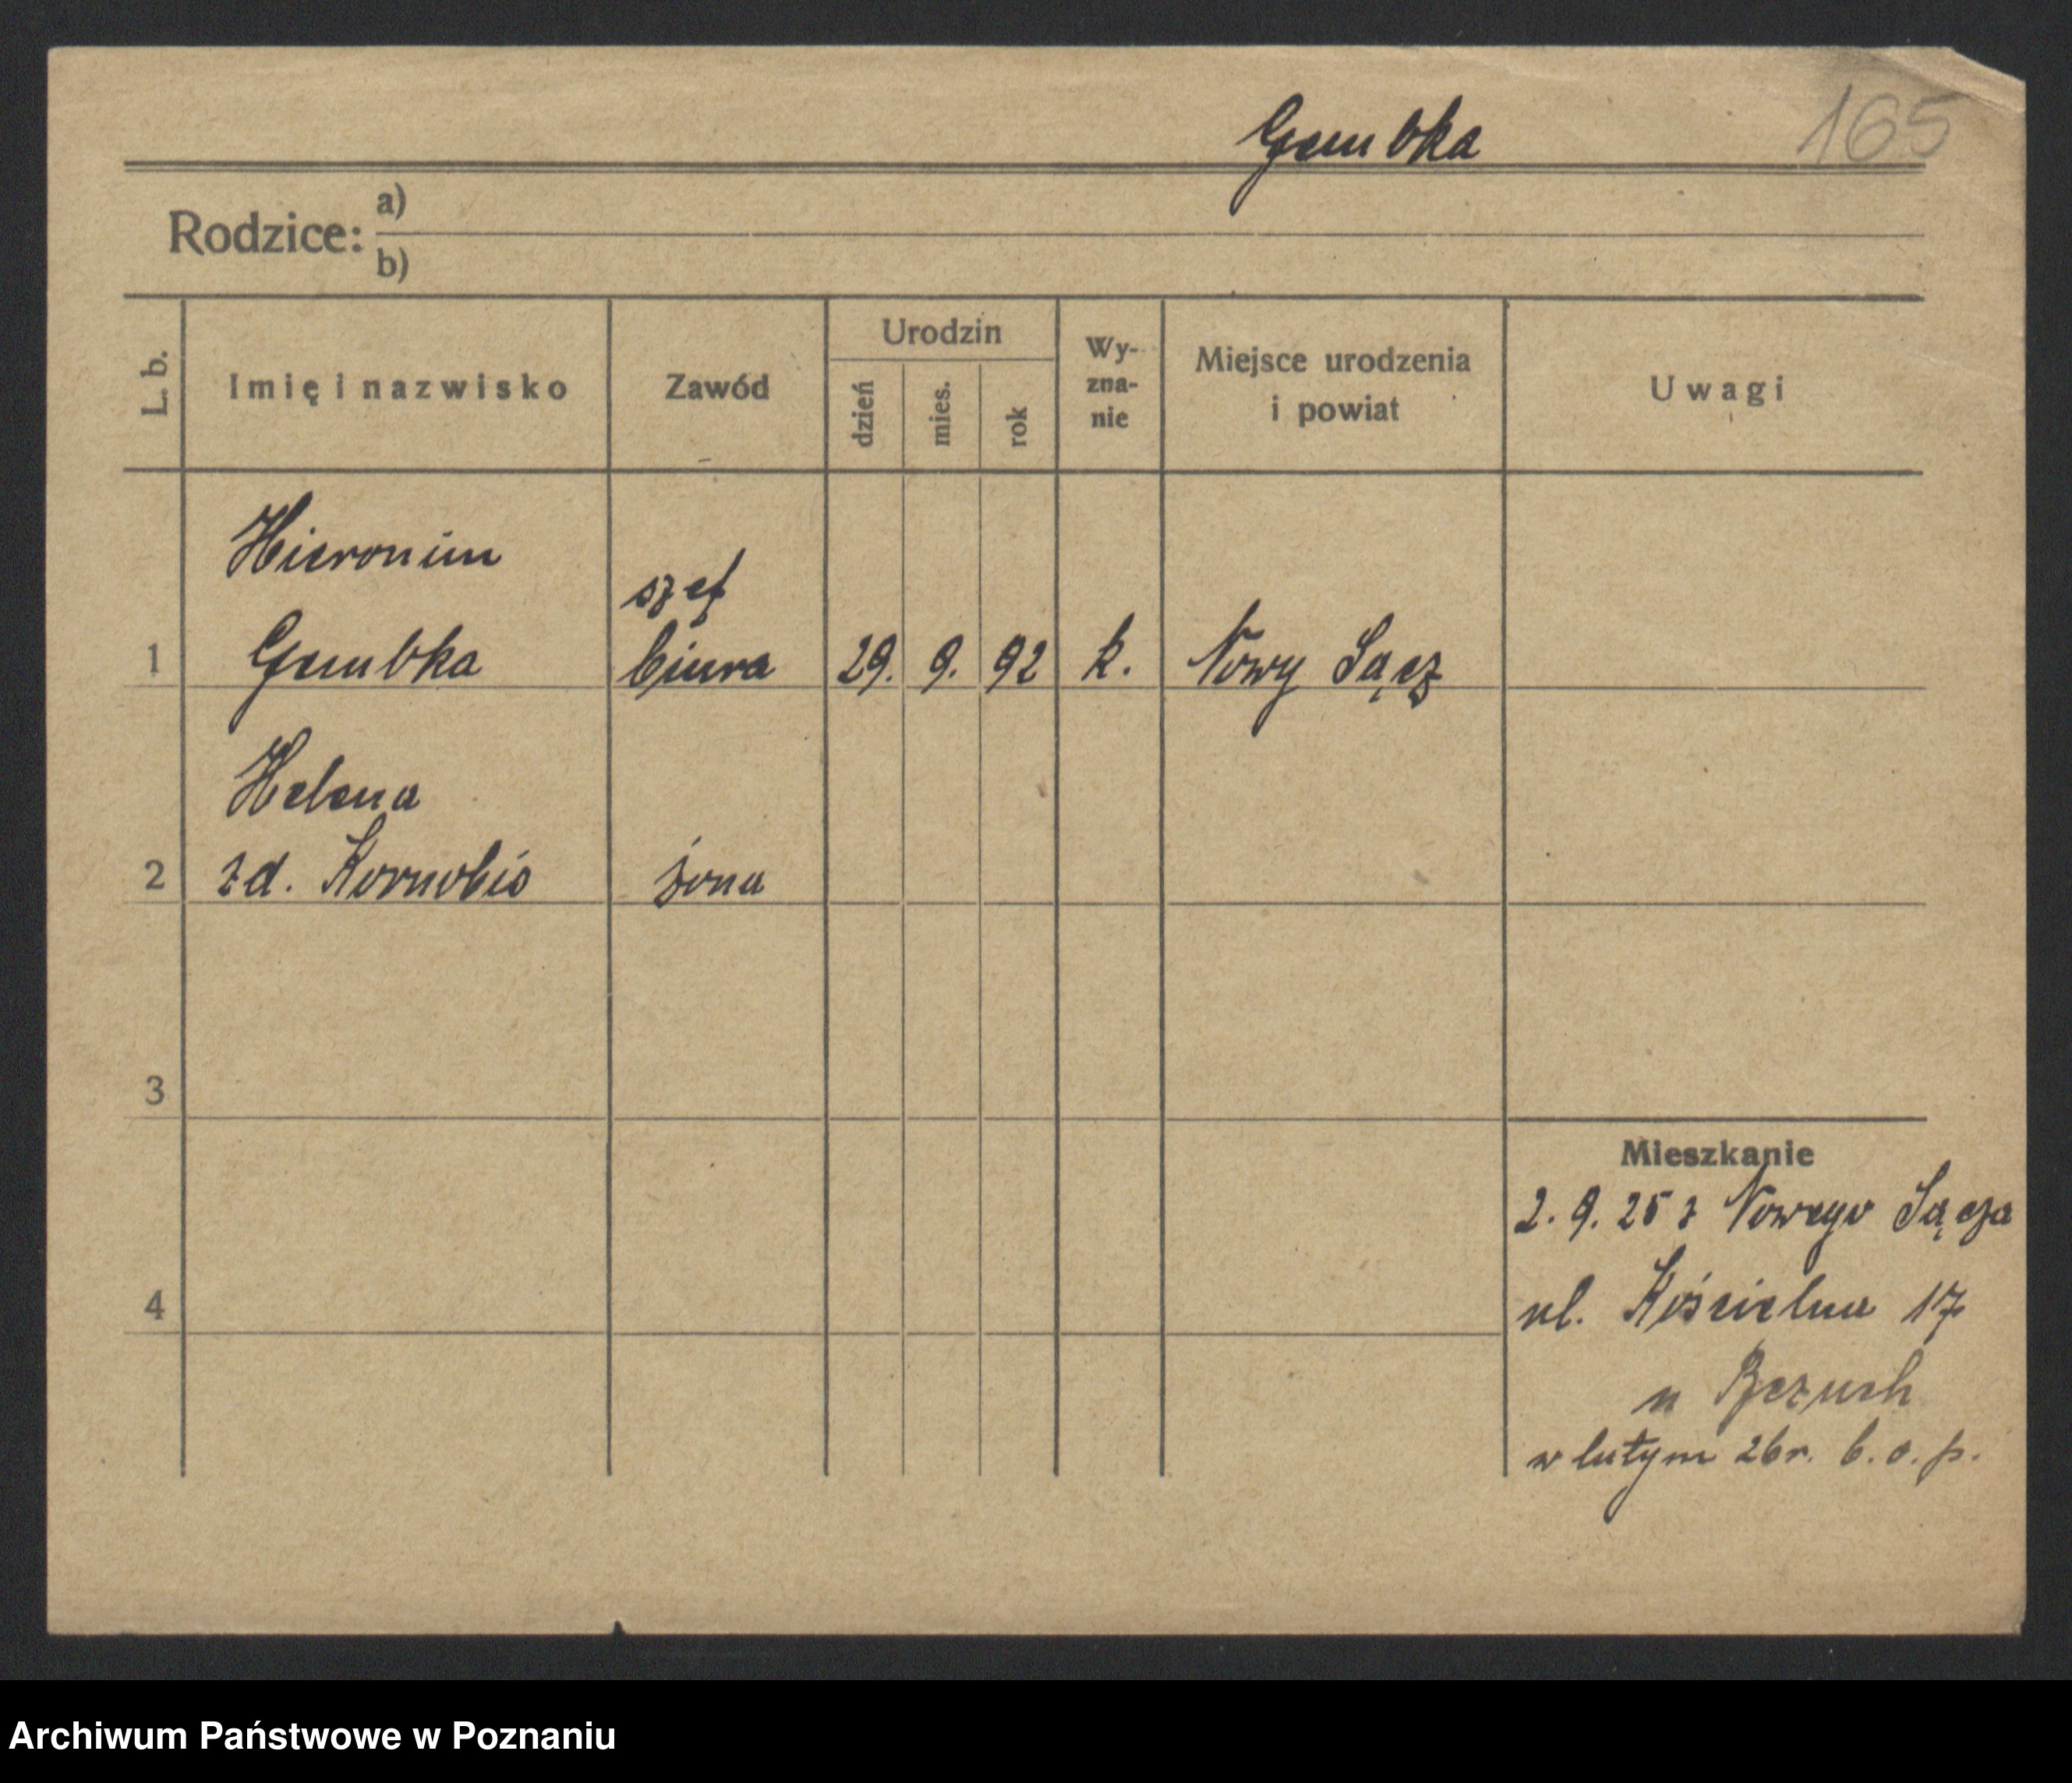 Gembka
165
Rodzice: a)
b)
L. b. Imię i nazwisko Zawód Urodzin dzień mies. rok Wyznanie Miejsce urodzenia i powiat Uwagi
Hieronim
szef
1 Gembka biura 29. 9. 92 k. Nowy Sącz
Helena
2 zd. Kornobis żona
3
Mieszkanie
2. 9. 25 z Nowego Sącza
4
ul. Kościelna 17
u
w lutym 26r. b. o. p.
Archiwum Państwowe w Poznaniu